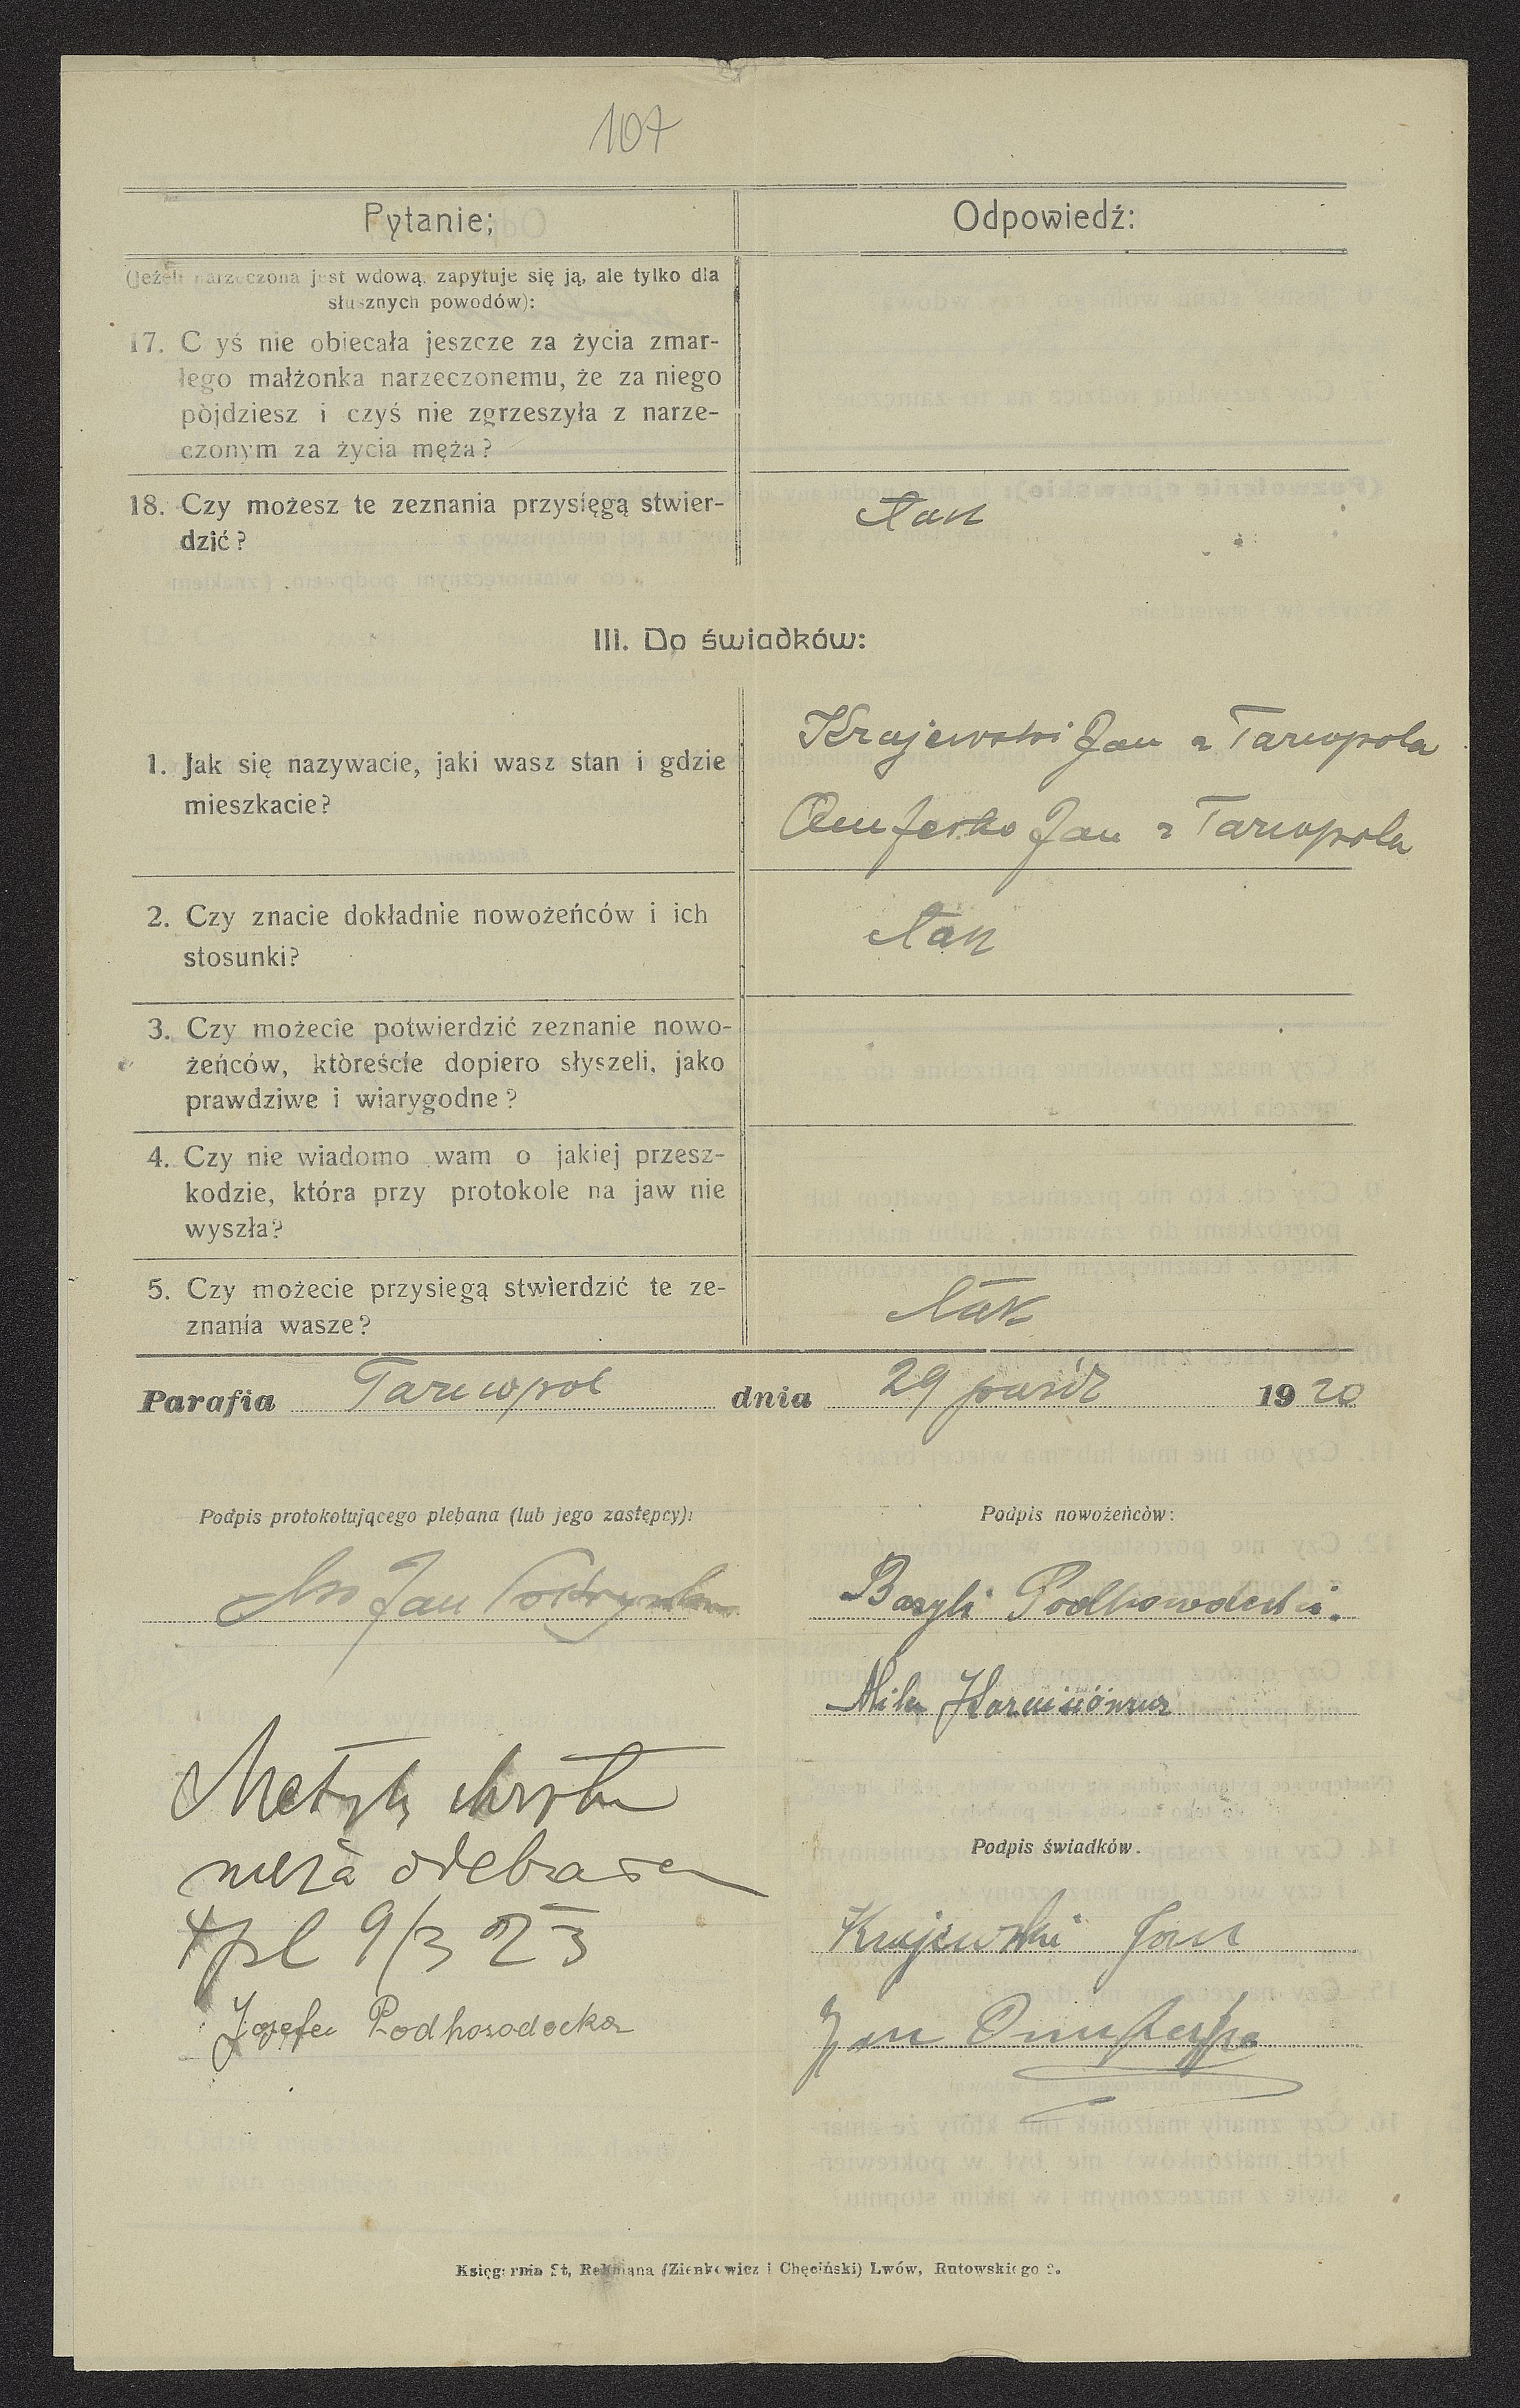 107
Pytanie;
Odpowiedź:
(Jeżeli narzeczona jest wdową, zapytuje się ją, ale tylko dla
słusznych powodów):
17. C yś nie obiecała jeszcze za życia zmar-
łego małżonka narzeczonemu, że za niego
pòjdziesz i czyś nie zgrzeszyła z narze-
czonym za życia męża?
18. Czy możesz te zeznania przysięgą stwier-
dzić?
Tak
III. Do świadków:
1. Jak się nazywacie, jaki wasz stan i gdzie
mieszkacie?
Krajewski Jan z Tarnopola
Jan z Tarnopola
2. Czy znacie dokładnie nowożeńców i ich
stosunki?
Tak
3. Czy możecie potwierdzić zeznanie nowo-
żeńców, któreście dopiero słyszeli, jako
prawdziwe i wiarygodne?
4. Czy nie wiadomo wam o jakiej przesz-
kodzie, która przy protokole na jaw nie
wyszła?
5. Czy możecie przysiegą stwierdzić te ze-
znania wasze?
Tak
Parafia Tarnopol dnia 29 paźdz 1920
Podpis protokołującego plebana (lub jego zastępcy):
Podpis nowożeńców:
Jan
Bazyli
Metrykę chrztu
męża odebrałam
Tpl 9/3 23
Józefa Podhorodecka
Podpis świadków.
Krajewski Jan
Jan
Księgarnia St, Rehmana (Zienkowicz i Chęciński) Lwów, Rutowskiego